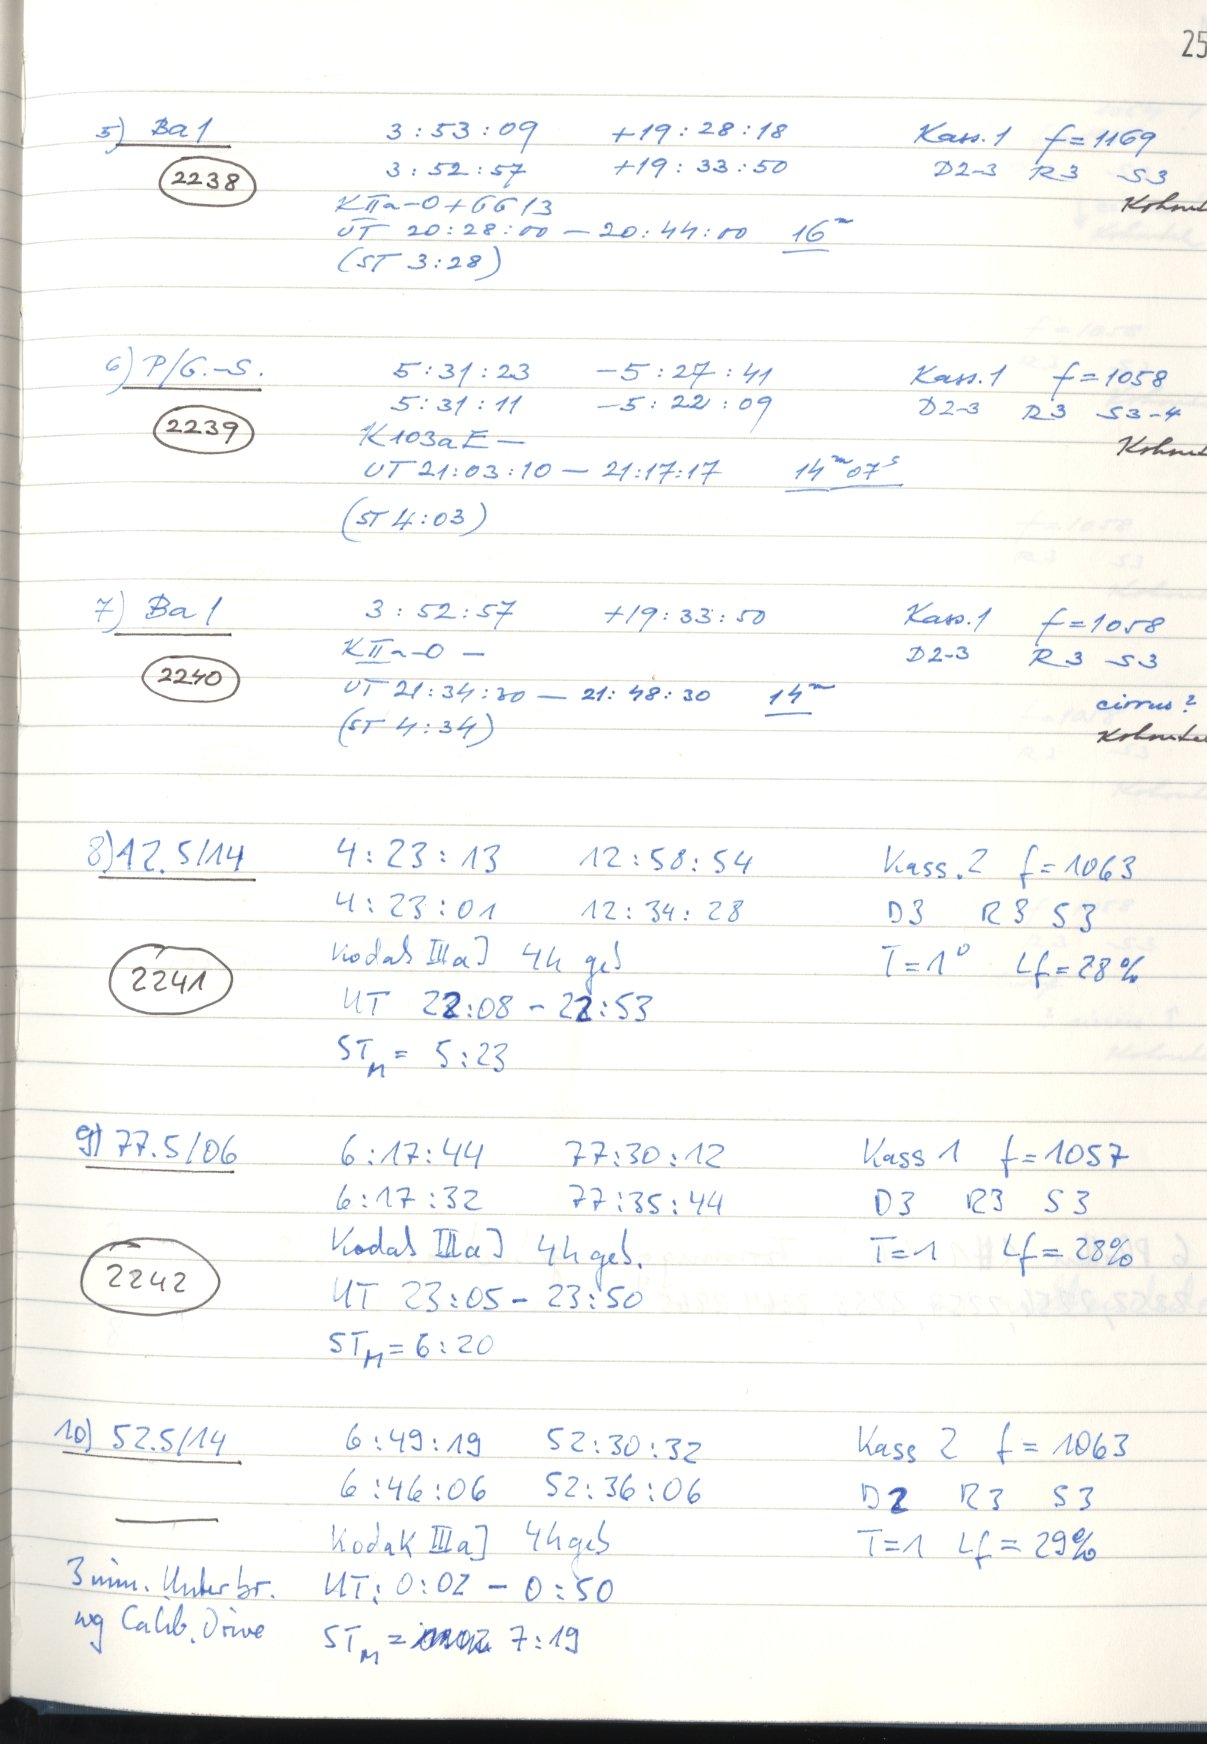 25
5) Ba 1 3:53:09 +19:28:18 Kass.1 f=1169
2238 3:52:57 +19:33:50 D2-3 R3 S3
KIIa-O+GG13 Kohoutek
UT 20:28:00 — 20:44:00 16m
(ST 3:28)
6) P/G.-S. 5:31:23 -5:27:41 Kass.1 f=1058
2239 5:31:11 -5:22:09 D2-3 R3 S3-4
K103aE — Kohoutek
UT 21:03:10 — 21:17:17 14m07s
(ST 4:03)
7) Ba 1 3:52:57 +19:33:50 Kass.1 f=1058
2240 KIIa-O — D2-3 R3 S3
UT 21:34:30 — 21:48:30 14m cirrus?
(ST 4:34) Kohoutek
8) 12.5/14 4:23:13 12:58:54 Kass.2 f=1063
4:23:01 12:34:28 D3 R3 S3
2241 Kodak IIIaJ 4h geb T=1° Lf=28%
UT 22:08 - 22:53
STM= 5:23
9) 77.5/06 6:17:44 77:30:12 Kass 1 f=1057
6:17:32 77:35:44 D3 R3 S3
2242 Kodak IIIaJ 4h geb. T=1 Lf=28%
UT 23:05 - 23:50
STM=6:20
10) 52.5/14 6:49:19 52:30:32 Kass 2 f=1063
6:46:06 52:36:06 D2 R3 S3
Kodak IIIaJ 4h geb T=1 Lf=29%
3 min. Unterbr. UT: 0:02 - 0:50
wg Calib. Drive STM= 7:19